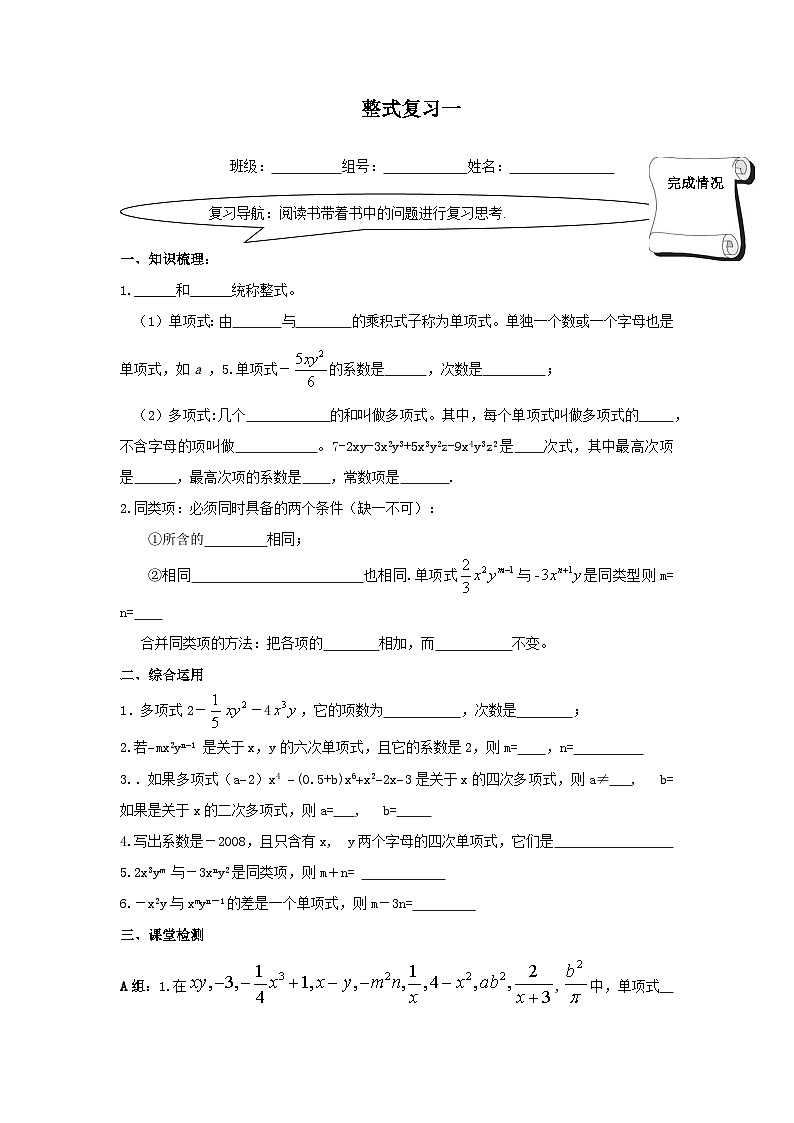 整式复习一
班级：__________组号：____________姓名：_______________
完成情况
复习导航：阅读书带着书中的问题进行复习思考.
一、知识梳理：
1.______和______统称整式。
（1）单项式：由_______与________的乘积式子称为单项式。单独一个数或一个字母也是
单项式，如 a ，5.单项式－5xy²/6的系数是______，次数是_________；
（2）多项式：几个____________的和叫做多项式。其中，每个单项式叫做多项式的_____，
不含字母的项叫做____________。7-2xy-3x²y³+5x³y²z-9x⁴y³z²是____次式，其中最高次项
是______，最高次项的系数是____，常数项是_______.
2.同类项：必须同时具备的两个条件（缺一不可）：
①所含的_________相同；
②相同_________________________也相同.单项式2/3 x²yᵐ⁻¹与-3xⁿ⁺¹y是同类型则 m=
n=____
合并同类项的方法：把各项的________相加，而___________不变。
二、综合运用
1．多项式 2－1/5 xy²－4x³y，它的项数为___________，次数是________；
2.若−mx²yⁿ⁻¹ 是关于 x，y 的六次单项式，且它的系数是 2，则 m=____，n=__________
3.．如果多项式（a−2）x⁴ −(0.5+b)x⁶+x²−2x−3 是关于 x 的四次多项式，则 a≠___, b=
如果是关于 x 的二次多项式，则 a=___, b=_____
4.写出系数是－2008，且只含有 x, y 两个字母的四次单项式，它们是_________________
5.2x³yᵐ 与－3xⁿy²是同类项，则 m＋n= ____________
6.－x²y 与 xᵐyⁿ⁻¹的差是一个单项式，则 m－3n=_________
三、课堂检测
A 组：1.在xy,−3,−1/4 x³+1,x−y,−m²n,1/x,4−x²,ab²,2/(x+3),b²/π 中，单项式__